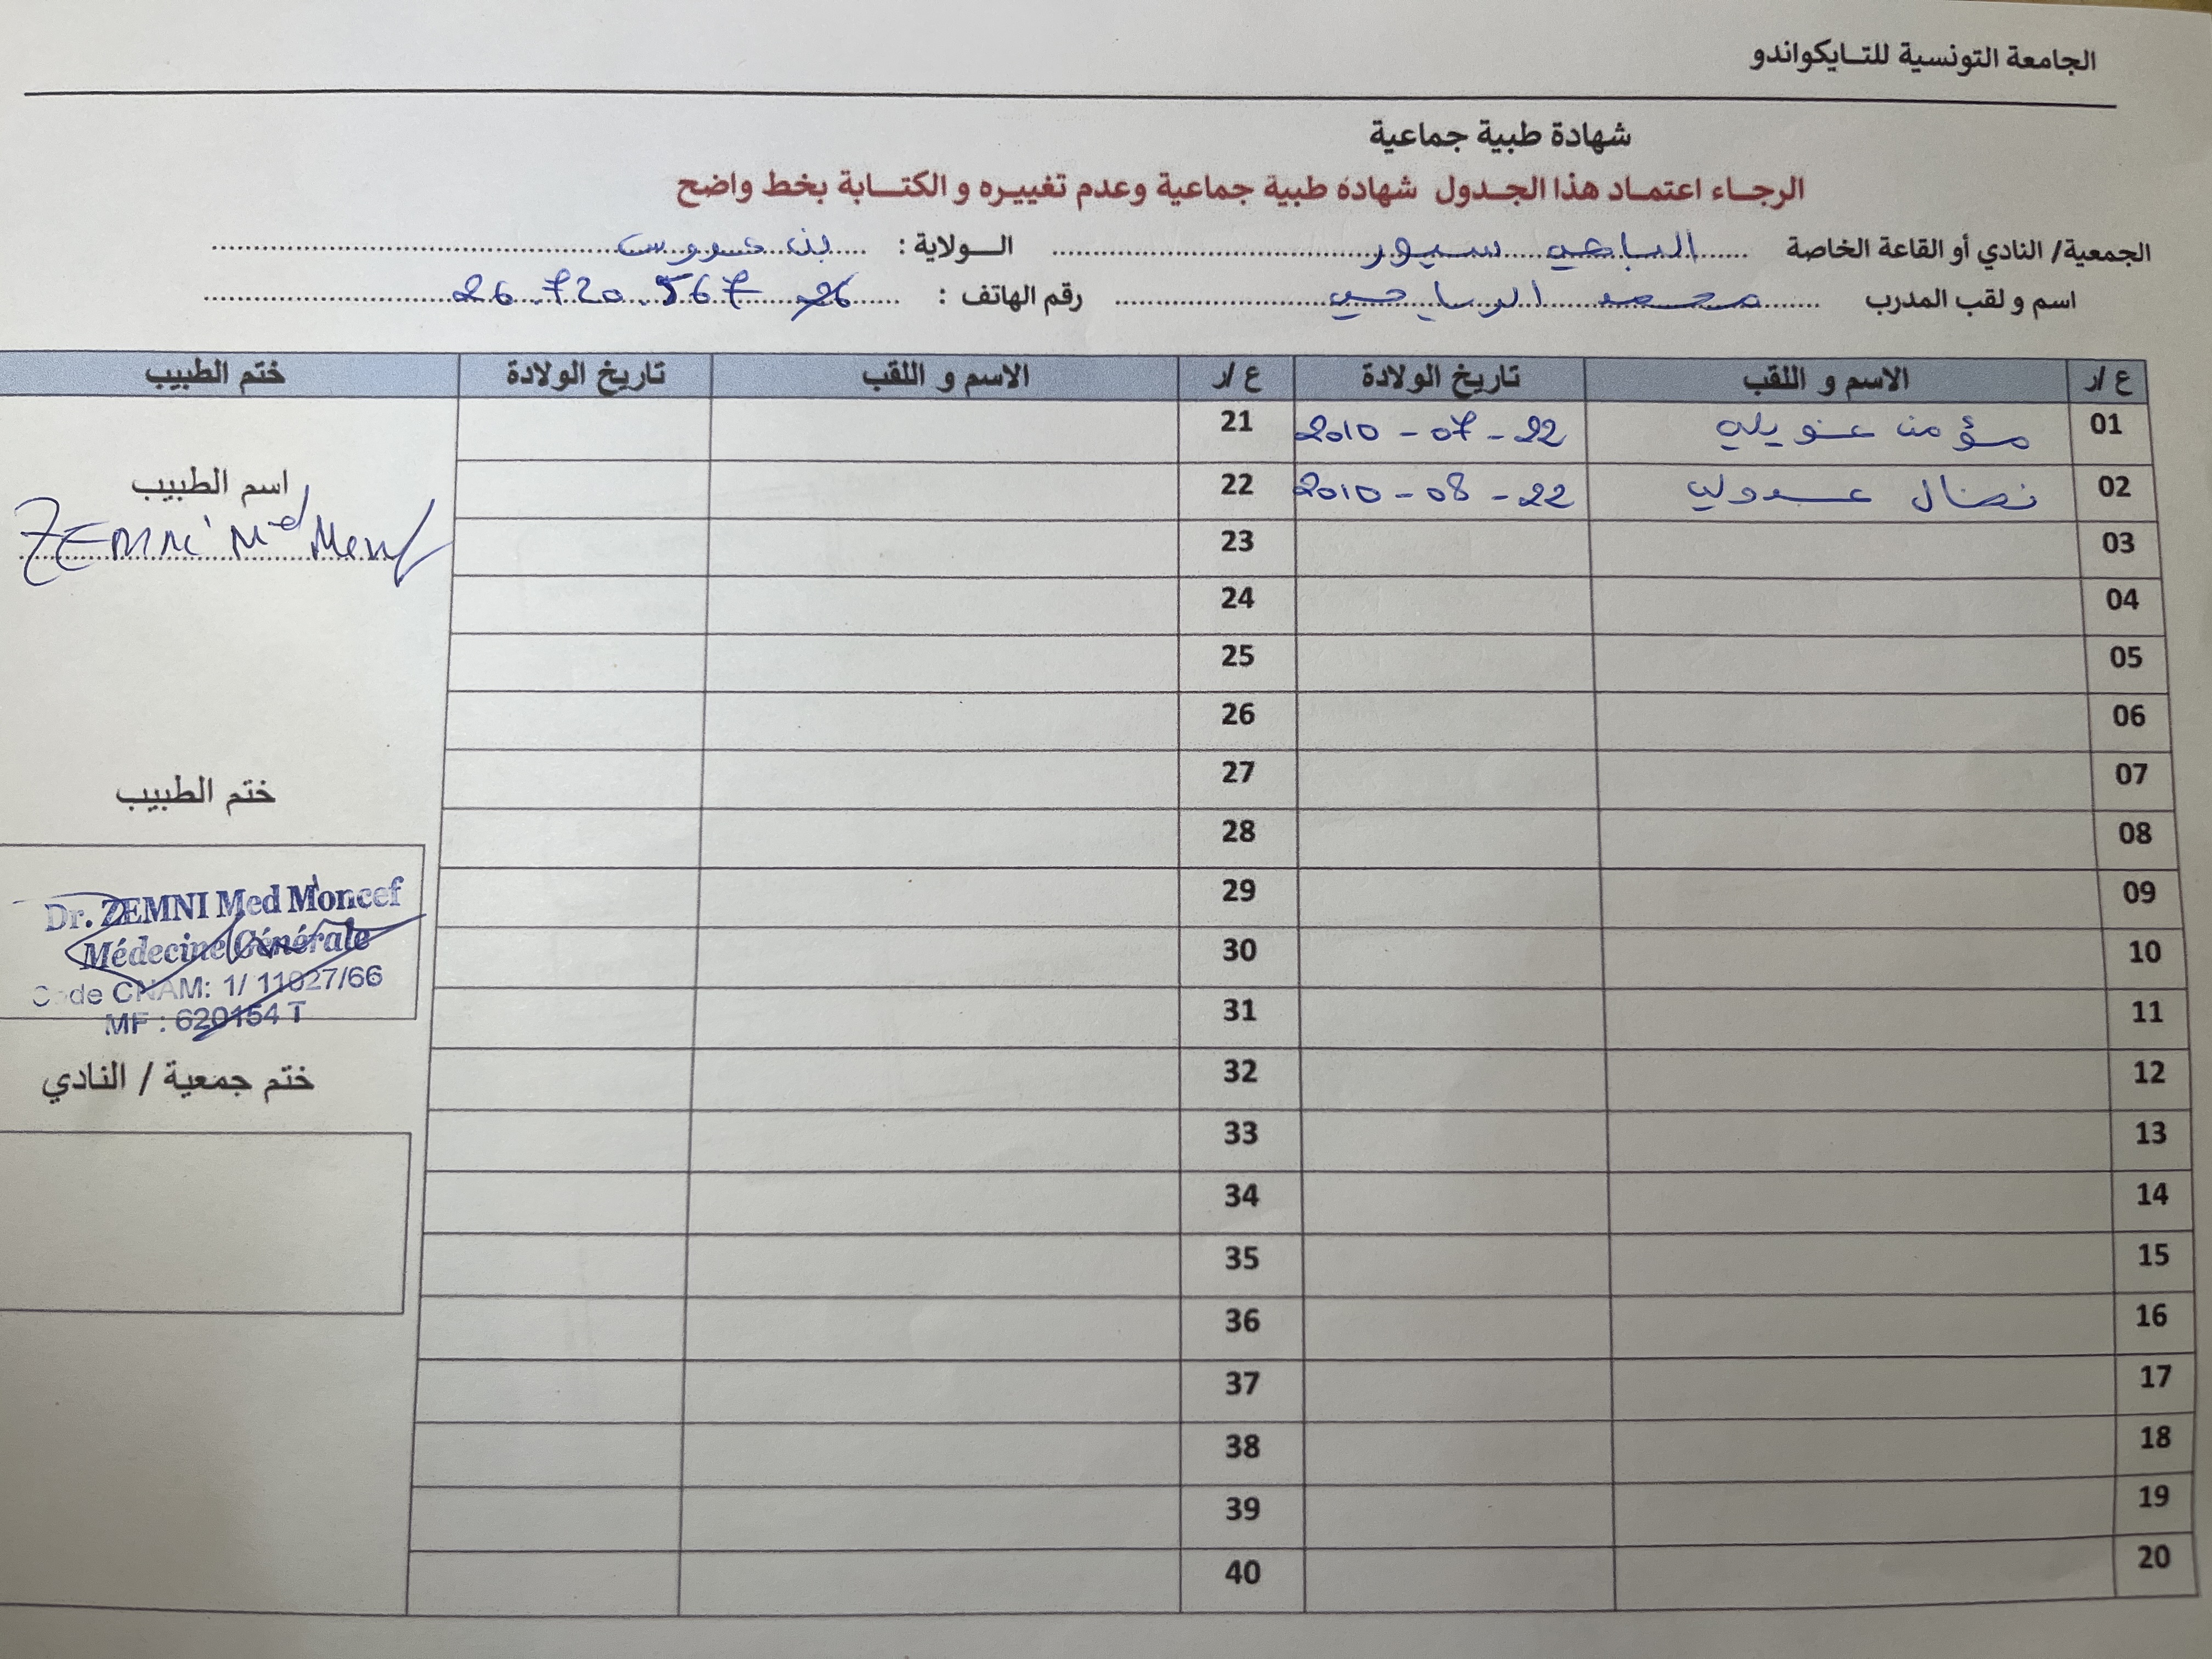 الجامعة التونسية للتايكواندو
شهادة طبية جماعية
الرجاء اعتماد هذا الجدول شهادة طبية جماعية وعدم تغييره و الكتابة بخط واضح
الجمعية/ النادي أو القاعة الخاصة الباجي سبور الولاية : بن عروس
اسم و لقب المدرب محمد الباجي رقم الهاتف : 26.720.567
ع /ر الاسم و اللقب تاريخ الولادة ع /ر الاسم و اللقب تاريخ الولادة ختم الطبيب
01 مؤمن 22 - 07 - 2010 21
02 نضال 22 - 08 - 2010 22
03 23
04 24
05 25
06 26
07 27
08 28
09 29
10 30
11 31
12 32
13 33
14 34
15 35
16 36
17 37
18 38
19 39
20 40
اسم الطبيب
ZEMNI Med
ختم الطبيب
Dr. ZEMNI Med Moncef
Médecine Générale
Code CNAM: 1/ 11027/66
MF : 620154 T
ختم جمعية / النادي